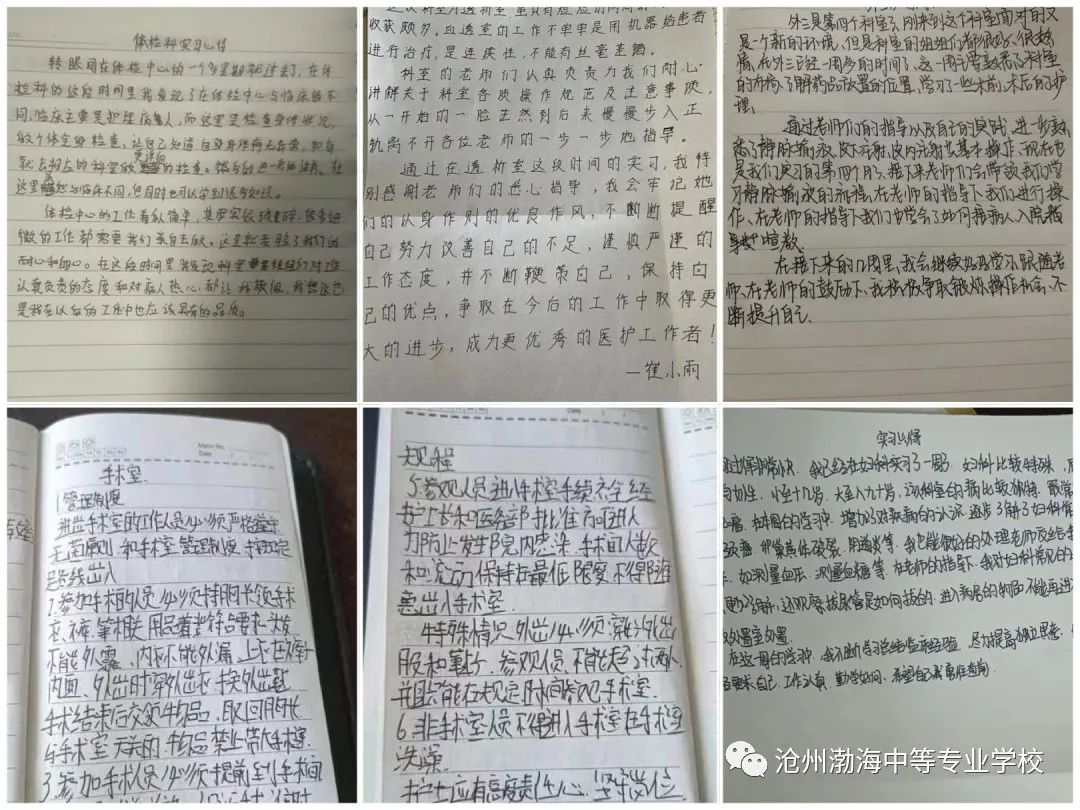 体检科实习心得
转眼间在体检中心的一个多星期就过去了，在体
检科的这段时间里我发现了在体检中心与临床的不
同，临床主要是护理病人，而这里是检查身体状况，
做个体全的检查，让自己知道自身身体有无异常，如有
就去相应的科室做更详细的检查。然后做进一步的治疗。在
这里虽然与临床不同，但同时也可以学到很多知识。
体检中心的工作看似简单，其实实操复杂，很多细
微的工作都需要我们亲自去做。这里就考验了我们的
耐心和细心。在这段时间里我发现科室里姐姐们对工作
认真负责的态度和对病人热心，都让我敬佩，我想这也
是我在以后的工作中也应该具有的品质。
收获颇多。血透室的工作不单单是用机器给患者
进行治疗，是连续性，不能有丝毫差错。
科室的老师们认真负责为我们耐心
讲解关于科室各质操作规范及注意事项，
从一开始的一脸茫然到后来慢慢步入正
轨离不开各位老师的一步一步地指导。
通过在透析室这段时间的实习，我特
别感谢老师们的悉心指导，我会牢记她
们的以身作则的优良作风，不断断提醒
自己努力改善自己的不足，谨慎严谨的
工作态度，并不断鞭策自己，保持自
己的优点，争取在今后的工作中取得更
大的进步，成为更优秀的医护工作者！
—崔小雨
外三是第四个科室了，刚来到这个科室面对的又
是一个新的环境，但是科室的姐姐们都很好、很热
情，在外三已经一周多的时间了，这一周主要熟悉了科室
的布局、了解药品放置的位置，学习了一些术前、术后的护
理。
通过老师们的指导以及自己的实践，进一步熟
悉了静脉输液、皮下注射、皮内注射些基本操作，现在也
是我们实习的第四个月，接下来老师们会带教我们学
习静脉输液的流程，在老师的指导下我们进行操
作，在老师的指导下我们也学会了如何接待新入院患者
宣教。
在接下来的几周里，我会继续好好学习跟随老
师，在老师的鼓励下，我积极争取锻炼操作机会，不
断提升自己。
手术室
1.管理制度
进出手术室的工作人员必须严格遵守
无菌原则和手术室管理制度，按规定
路线出入
2.参加手术的人员必须持胸卡领手术
衣、裤、等相关用品着装符合要求：头发
不能外露，内衣不能外漏，上衣在裤子
内面，外出时穿外出衣，换外出鞋
手术结束后交领手物品，取回胸卡
与手术室无关的物品禁止带入手术室。
3.参加手术人员必须提前到手术间
规程
5.参观人员进入手术室手续齐全经
护士长和医务部批准方可进入
为防止发生院内感染，手术间人数
和流动保持在最低限度，不得随
意出入手术室。
4特殊情况外出必须穿外出
服和鞋子，参观人员不能超过两人
并且只能在规定时间参观手术室。
6.非手术室人员不得进入手术室在手术室
洗澡。
护士应有高度责任心，坚守岗位
实习心得
我已经在妇科实习了一周，妇科比较特殊，
小至十几岁，大至八九十岁，该科室的病比较独特，
在本周的学习中，增加了对疾病的认识，逐步了解了妇科常
黄体破裂、阴道炎等，我也能很好的处理老师交给
如测量血压，测量血糖等，在老师的指导下，我对妇科常见的
了解，还观察拔尿管是如何拔的，进入病房的物品不能再进
处置室处置。
在这一周的学习中，我不断学习总结临床经验，尽力提高独立思考，
要求自己，工作认真，勤学好问，希望自己
沧州渤海中等专业学校